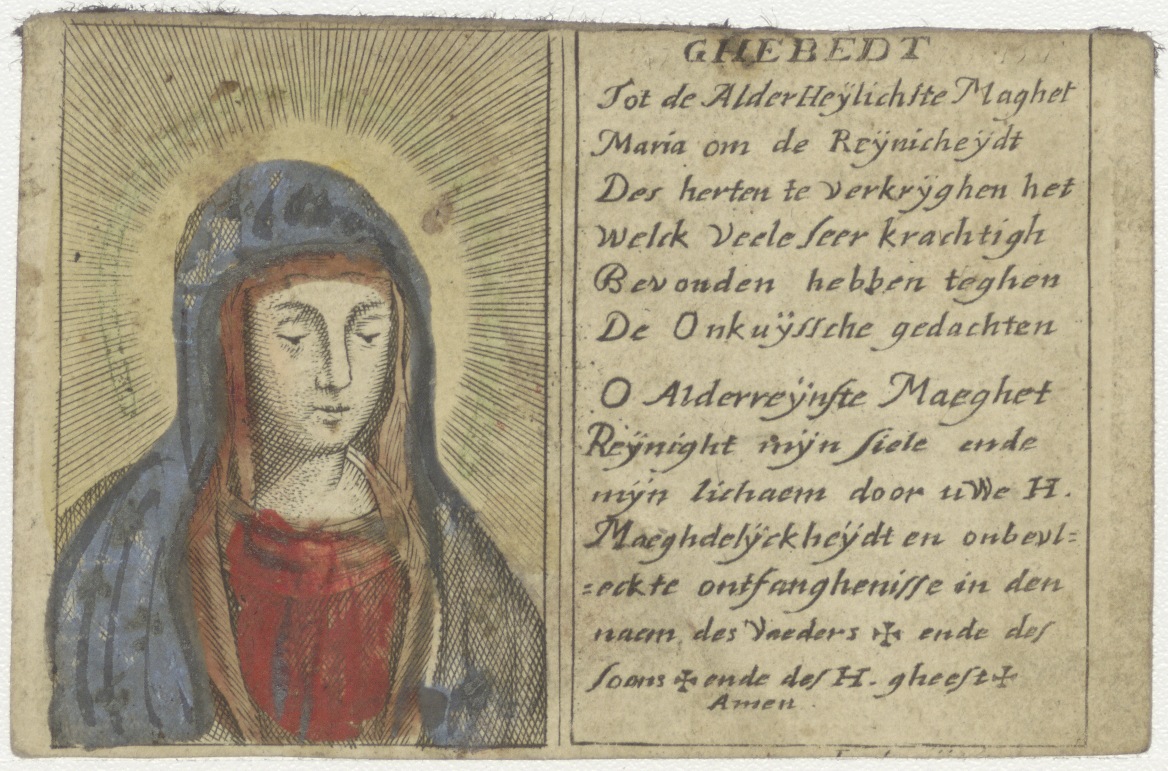 GHEBEDT
Tot de AlderHeÿlichste Maghet
Maria om de Reÿnicheÿdt
Des herten te verkrÿghen het
welck veele seer krachtigh
Bevonden hebben teghen
De Onkuÿssche gedachten
O Alderreÿnste Maeghet
Reÿnight mÿn siele ende
mÿn lichaem door uwe H.
Maeghdelÿckheÿdt en onbevl=
=eckte ontfanghenisse in den
naem des Vaeders ✠ ende des
soons ✠ ende des H. gheest ✠
Amen